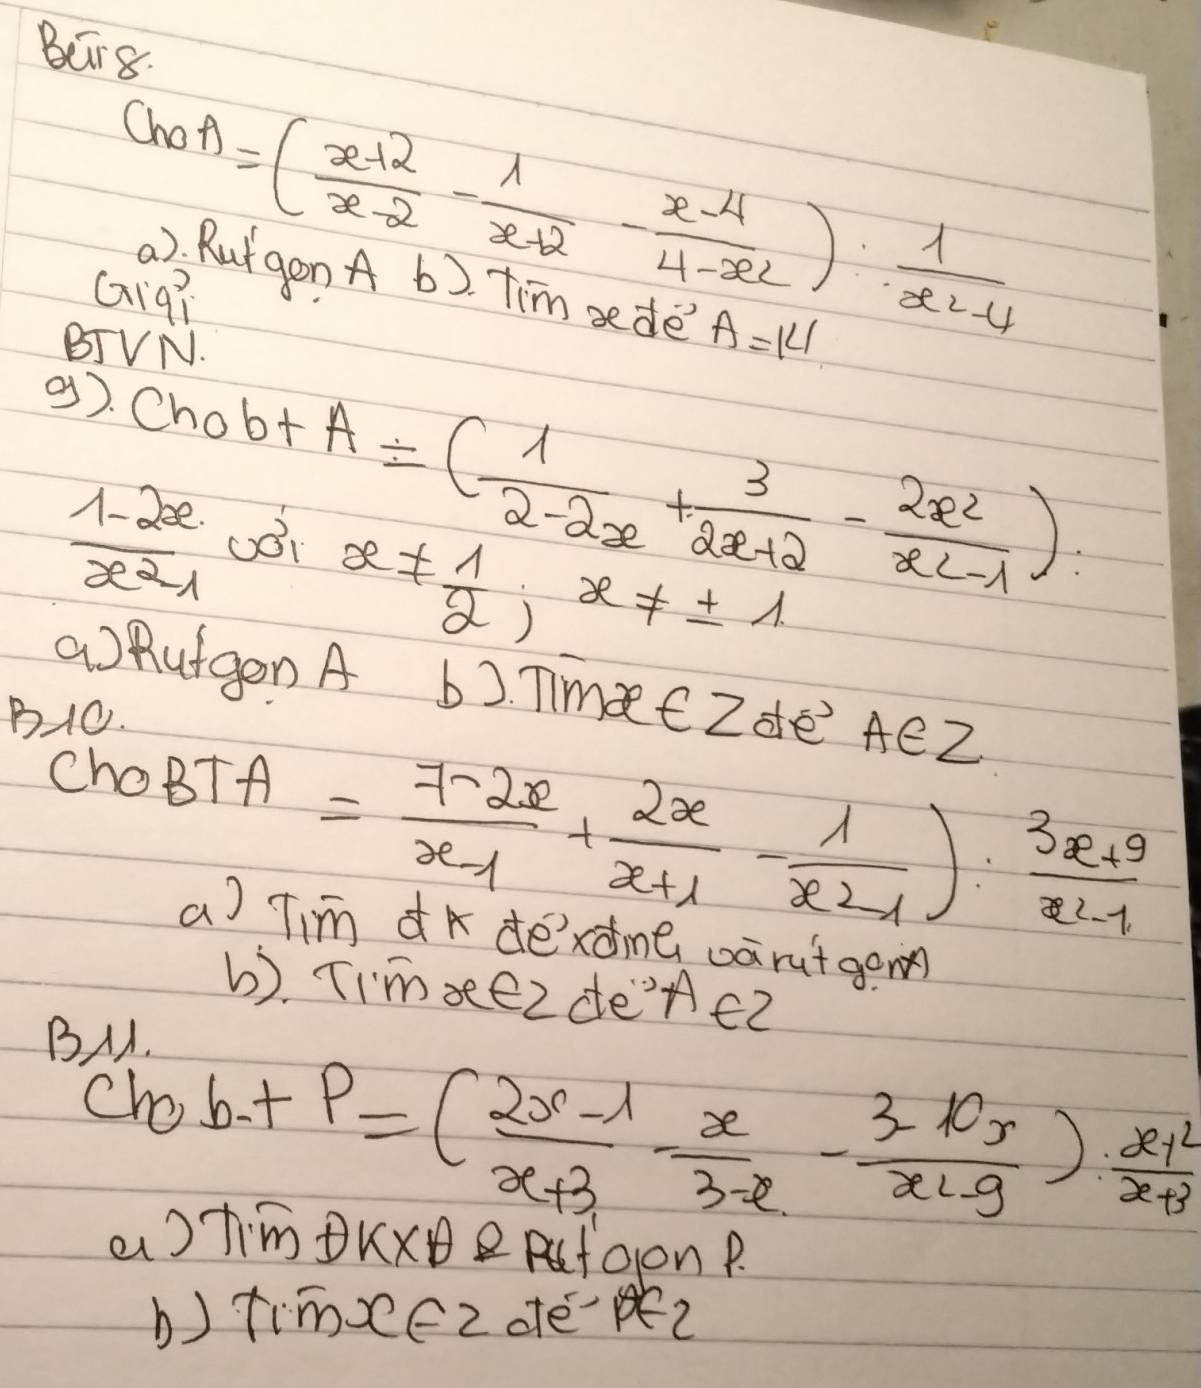 Bài 8.
Cho A = (x+2/x-2 - 1/x+2 - x-4/4-x²) : 1/x²-4
a). Rút gọn A b). Tìm x để A = 14
Giải
BTVN.
9). Cho bt A = (1/2-2x + 3/2x+2 - 2x²/x²-1) :
1-2x/x²-1 với x ≠ 1/2 ; x ≠ ± 1
a) Rút gọn A b). Tìm x ∈ Z để A ∈ Z
B10.
Cho BT A = 7-2x/x-1 + 2x/x+1 - 1/x²-1) : 3x+9/x²-1
a) Tìm đk để xđ và rút gọn A
b). Tìm x ∈ Z để A ∈ Z
B11.
Cho b.t P = (2x-1/x+3 - x/3-x - 3-10x/x²-9) : x+2/x+3
a) Tìm ĐKXĐ & Rút gọn P.
b) Tìm x ∈ Z để P ∈ Z